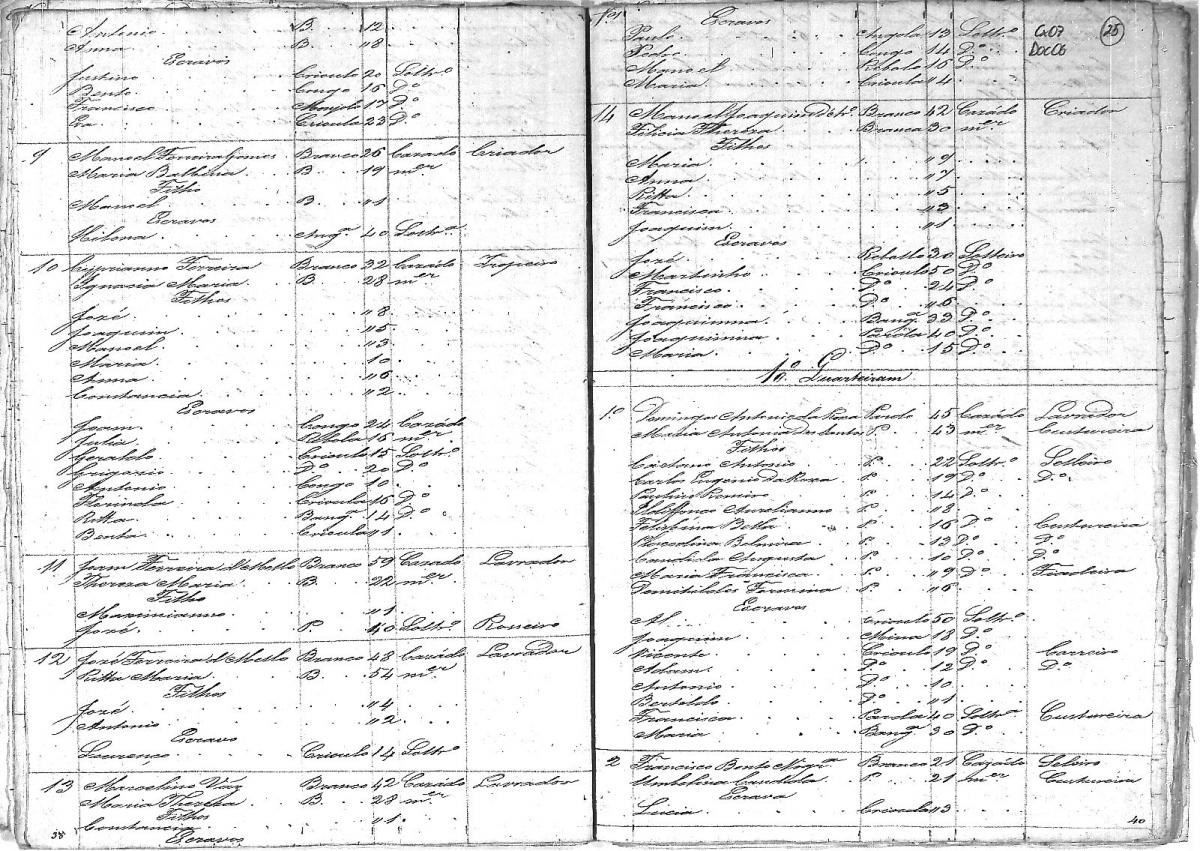 Antonio B. 12
Anna B. 8
Escravos
Justino Crioulo 20 Soltrº
Bento Congo 16 Dº
Francisco Monjolo 17 Dº
Eva Crioula 23 Dº
9 Manoel Ferreira Gomes Branco 26 Cazado Criador
Maria B. 19 mer
Filho
Manoel B. "1
Escravos
Hilena Angª 40 Soltrª
10 Cyprianno Ferreira Branco 32 Cazádo Tropeiro
Ignacia Maria B. 28 mer
Filhos
Jozé "8
Joaquim "5
Manoel "3
Maria 10
Anna "6
Constancia "2
Escravos
Joam Congo 24 Cazádo
Julia Rebola 16 mer
Geraldo Crioulo 15 Soltrº
Grigorio Dº 20 Dº
Antonio Congo 10
Florinda Crioula 16 Dº
Ritta Bangª 14 Dº
Benta Crioula "1
11 Joam Ferreira d'Mello Branco 59 Cazado Lavrador
Thereza Maria B. 22 mer
Filho
Maximianno "1
Jozé P. 40 Soltrº Rosseiro
12 Jozé Ferreira d'Mello Branco 48 Cazádo Lavrador
Ritta Maria B. 54 mer
Filhos
Jozé "4
Antonio "2
Escravo
Lourenco Crioulo 14 Soltrº
13 Marcelino Vaz Branco 42 Cazádo Lavrador
Maria Thereza B. 28 mer
Filhos
Constancia "1
Escravos
38
Escravos
Paulo Angola 13 Soltrº
Pedro Congo 14 Dº
Manoel Rebolo 16 Dº
Maria Crioula "4
Cx07
Doc06
25
14 Manoel Joaquim Branco 42 Cazádo Criador
Felicia Thereza Branca 30 mer
Filhos
Maria "9
Anna "7
Ritta "5
Francisca "3
Joaquim "1
Escravos
Jozé Rebollo 30 Solteiro
Martinho Crioulo 50 Dº
Francisco Dº 24 Dº
Francisco Dº "6
Joaquimna Bangª 33 Dº
Joaquimna Parola 40 Dº
Maria Dº 15 Dº
10º Quarteiram
1º Domingos Antonio da Roza Pardo 45 Cazádo Lavrador
Maria Antonia dos Santos P. 43 mer Custureira
Filhos
Caetano Antonio P. 22 Soltrº Selleiro
Carlos Eugenio da Roza P. 19 Dº Dº
Romeiro P. 14 Dº
Aurelianno P. "8
Felisbina Bella P. 16 Dº Custureira
Placedina Belmira P. 13 Dº Dº
Candida Augusta P. 10 Dº Dº
Maria Francisca P. "9 Dº Fiadeira
P. "6
Escravos
Crioulo 50 Soltrº
Joaquim Mina 18 Dº
Vicente Crioulo 19 Dº Carreiro
Adam Dº 12 Dº Dº
Antonio Dº 10
Bertoldo Dº "1
Francisca Parola 40 Soltrª Custureira
Maria Bangª 30 Dº
2 Francisco Bento Branco 21 Cazádo Seleiro
Umbelina Candida P. 21 mer Custureira
Escrava
Lucia Crioula "3
40